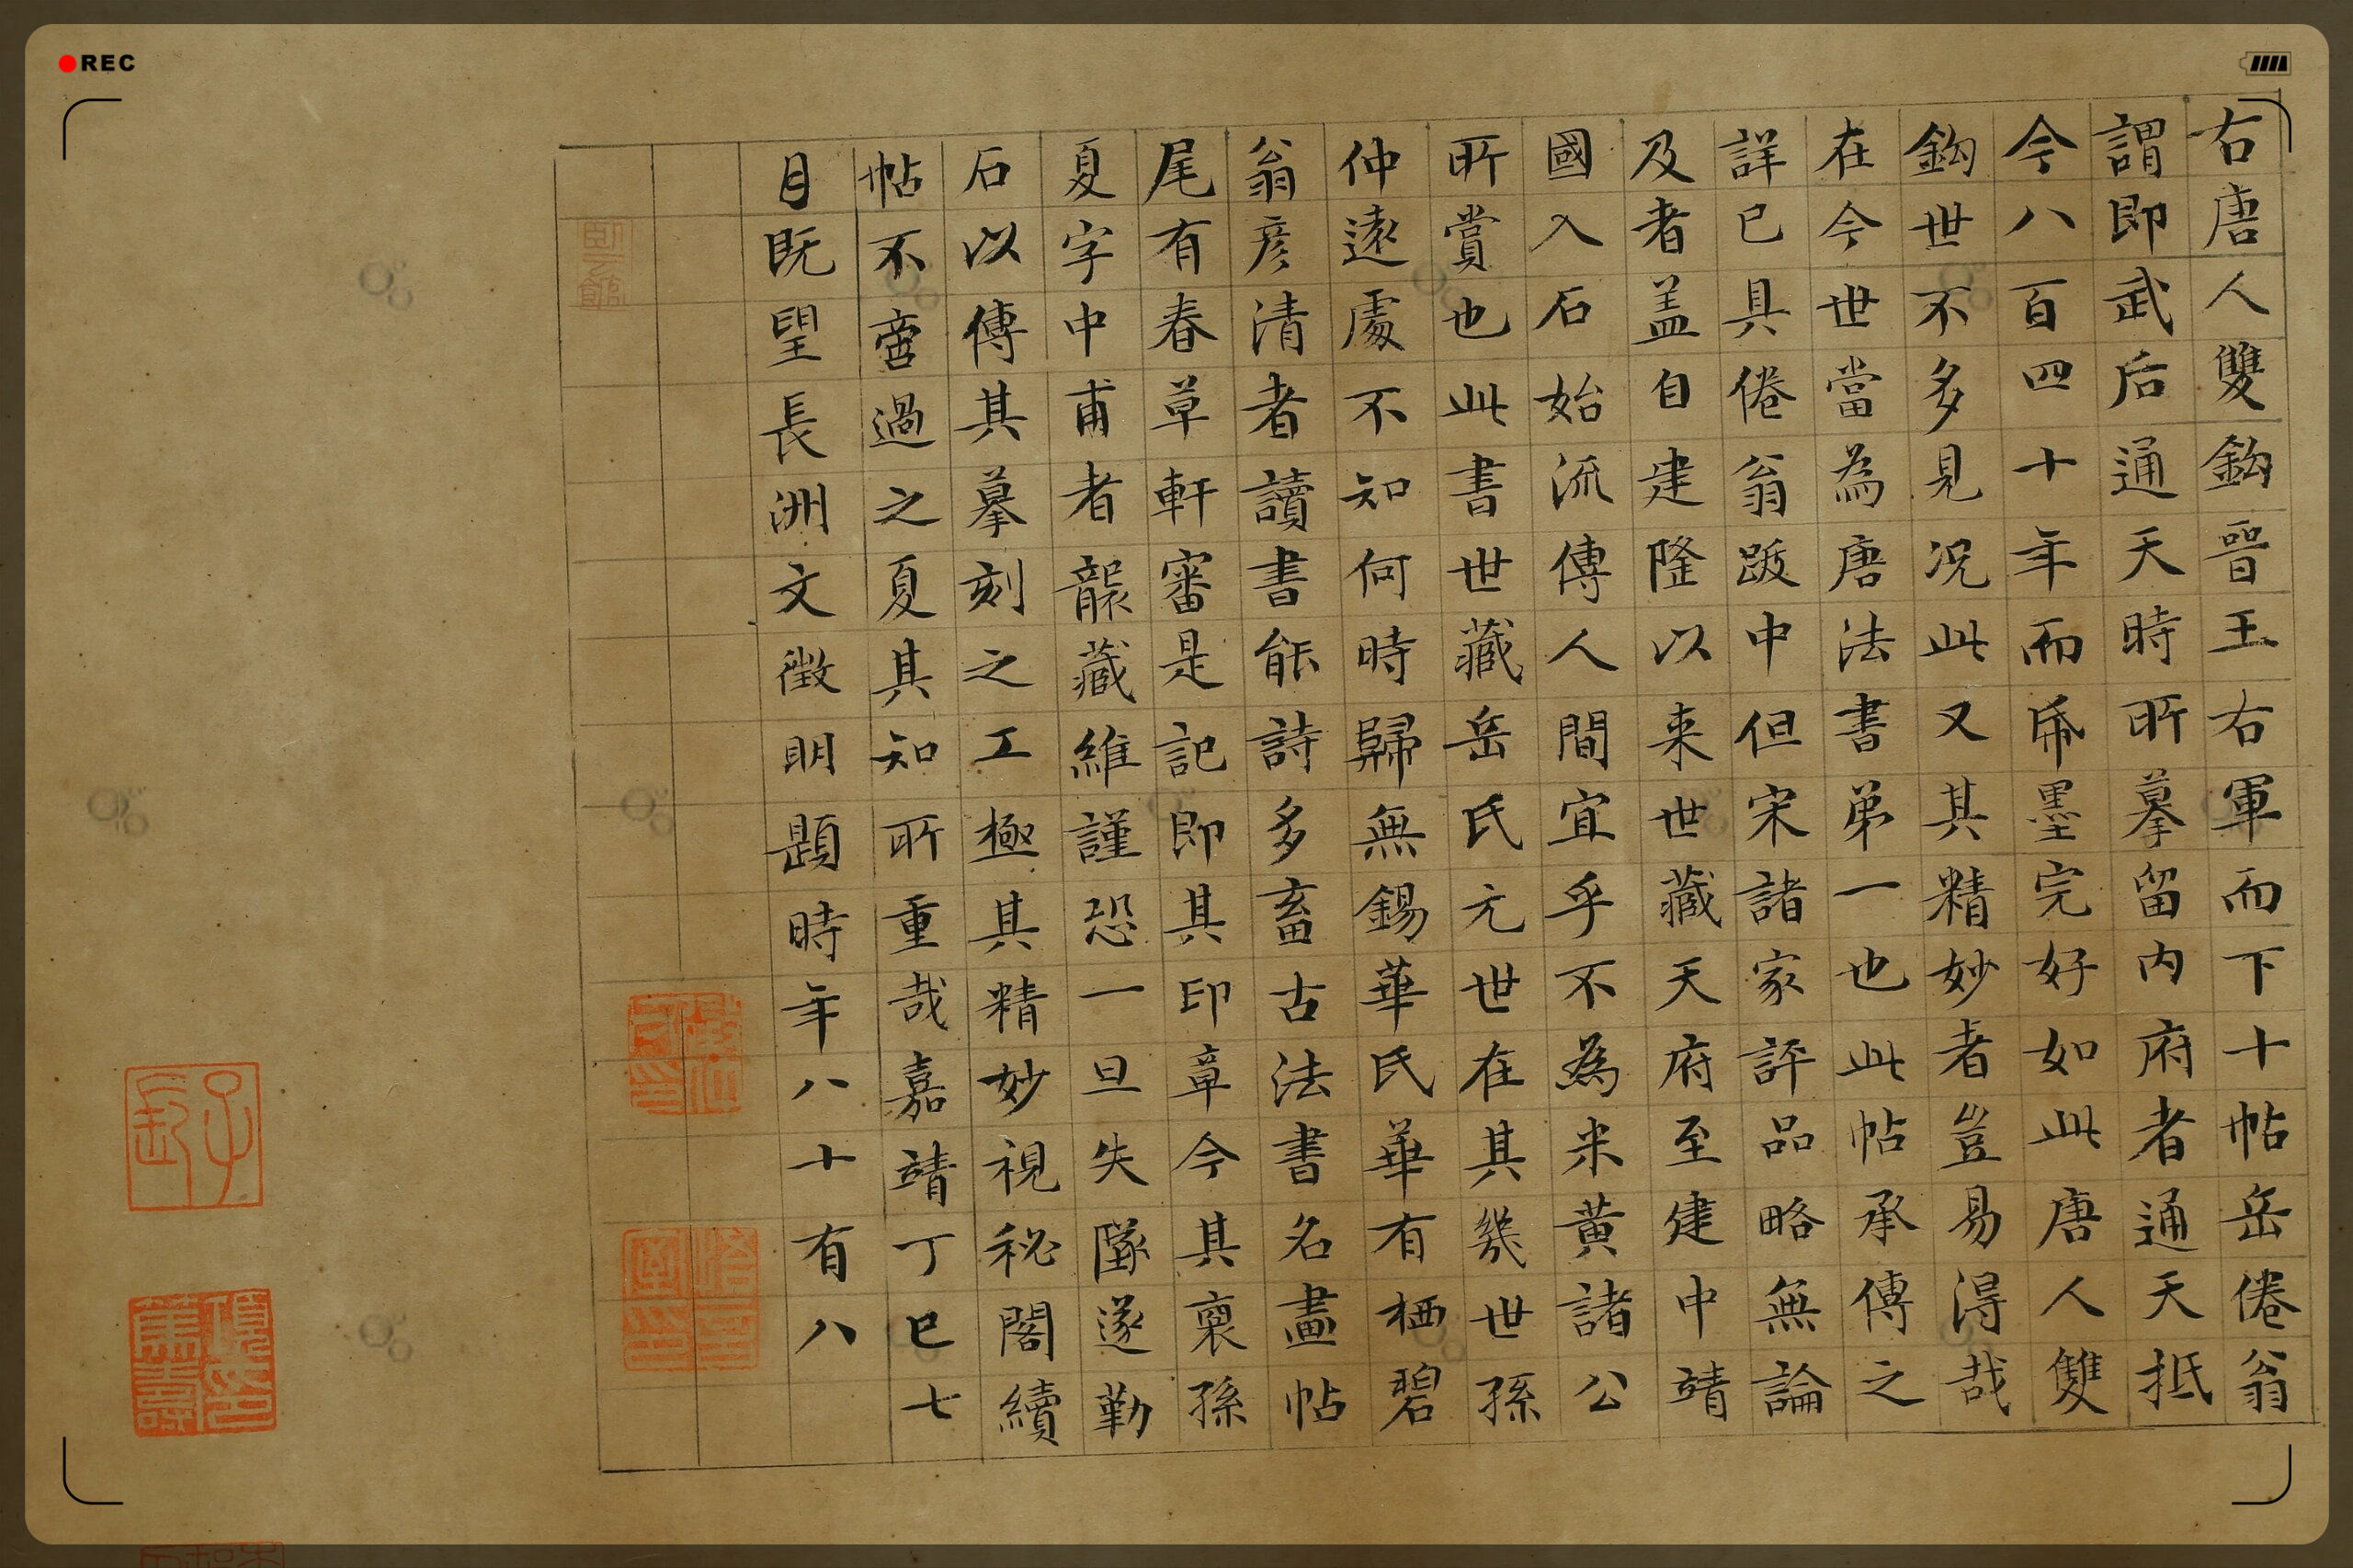 REC
右唐人雙鈎晉王右軍而下十帖岳倦翁
謂即武后通天時所摹留內府者通天抵
今八百四十年而帋墨完好如此唐人雙
鈎世不多見况此又其精妙者豈易淂哉
在今世當為唐法書第一也此帖承傳之
詳已具倦翁跋中但宋諸家評品略無論
及者盖自建隆以来世藏天府至建中靖
國入石始流傳人間宜乎不為米黃諸公
所賞也此書世藏岳氏元世在其幾世孫
仲遠處不知何時歸無錫華氏華有栖碧
翁彦清者讀書能詩多畜古法書名畫帖
尾有春草軒審是記即其印章今其裔孫
夏字中甫者龍藏維謹恐一旦失墜遂勒
石以傳其摹刻之工極其精妙視秘閣續
帖不啻過之夏其知所重哉嘉靖丁巳七
月既望長洲文徵明題時年八十有八